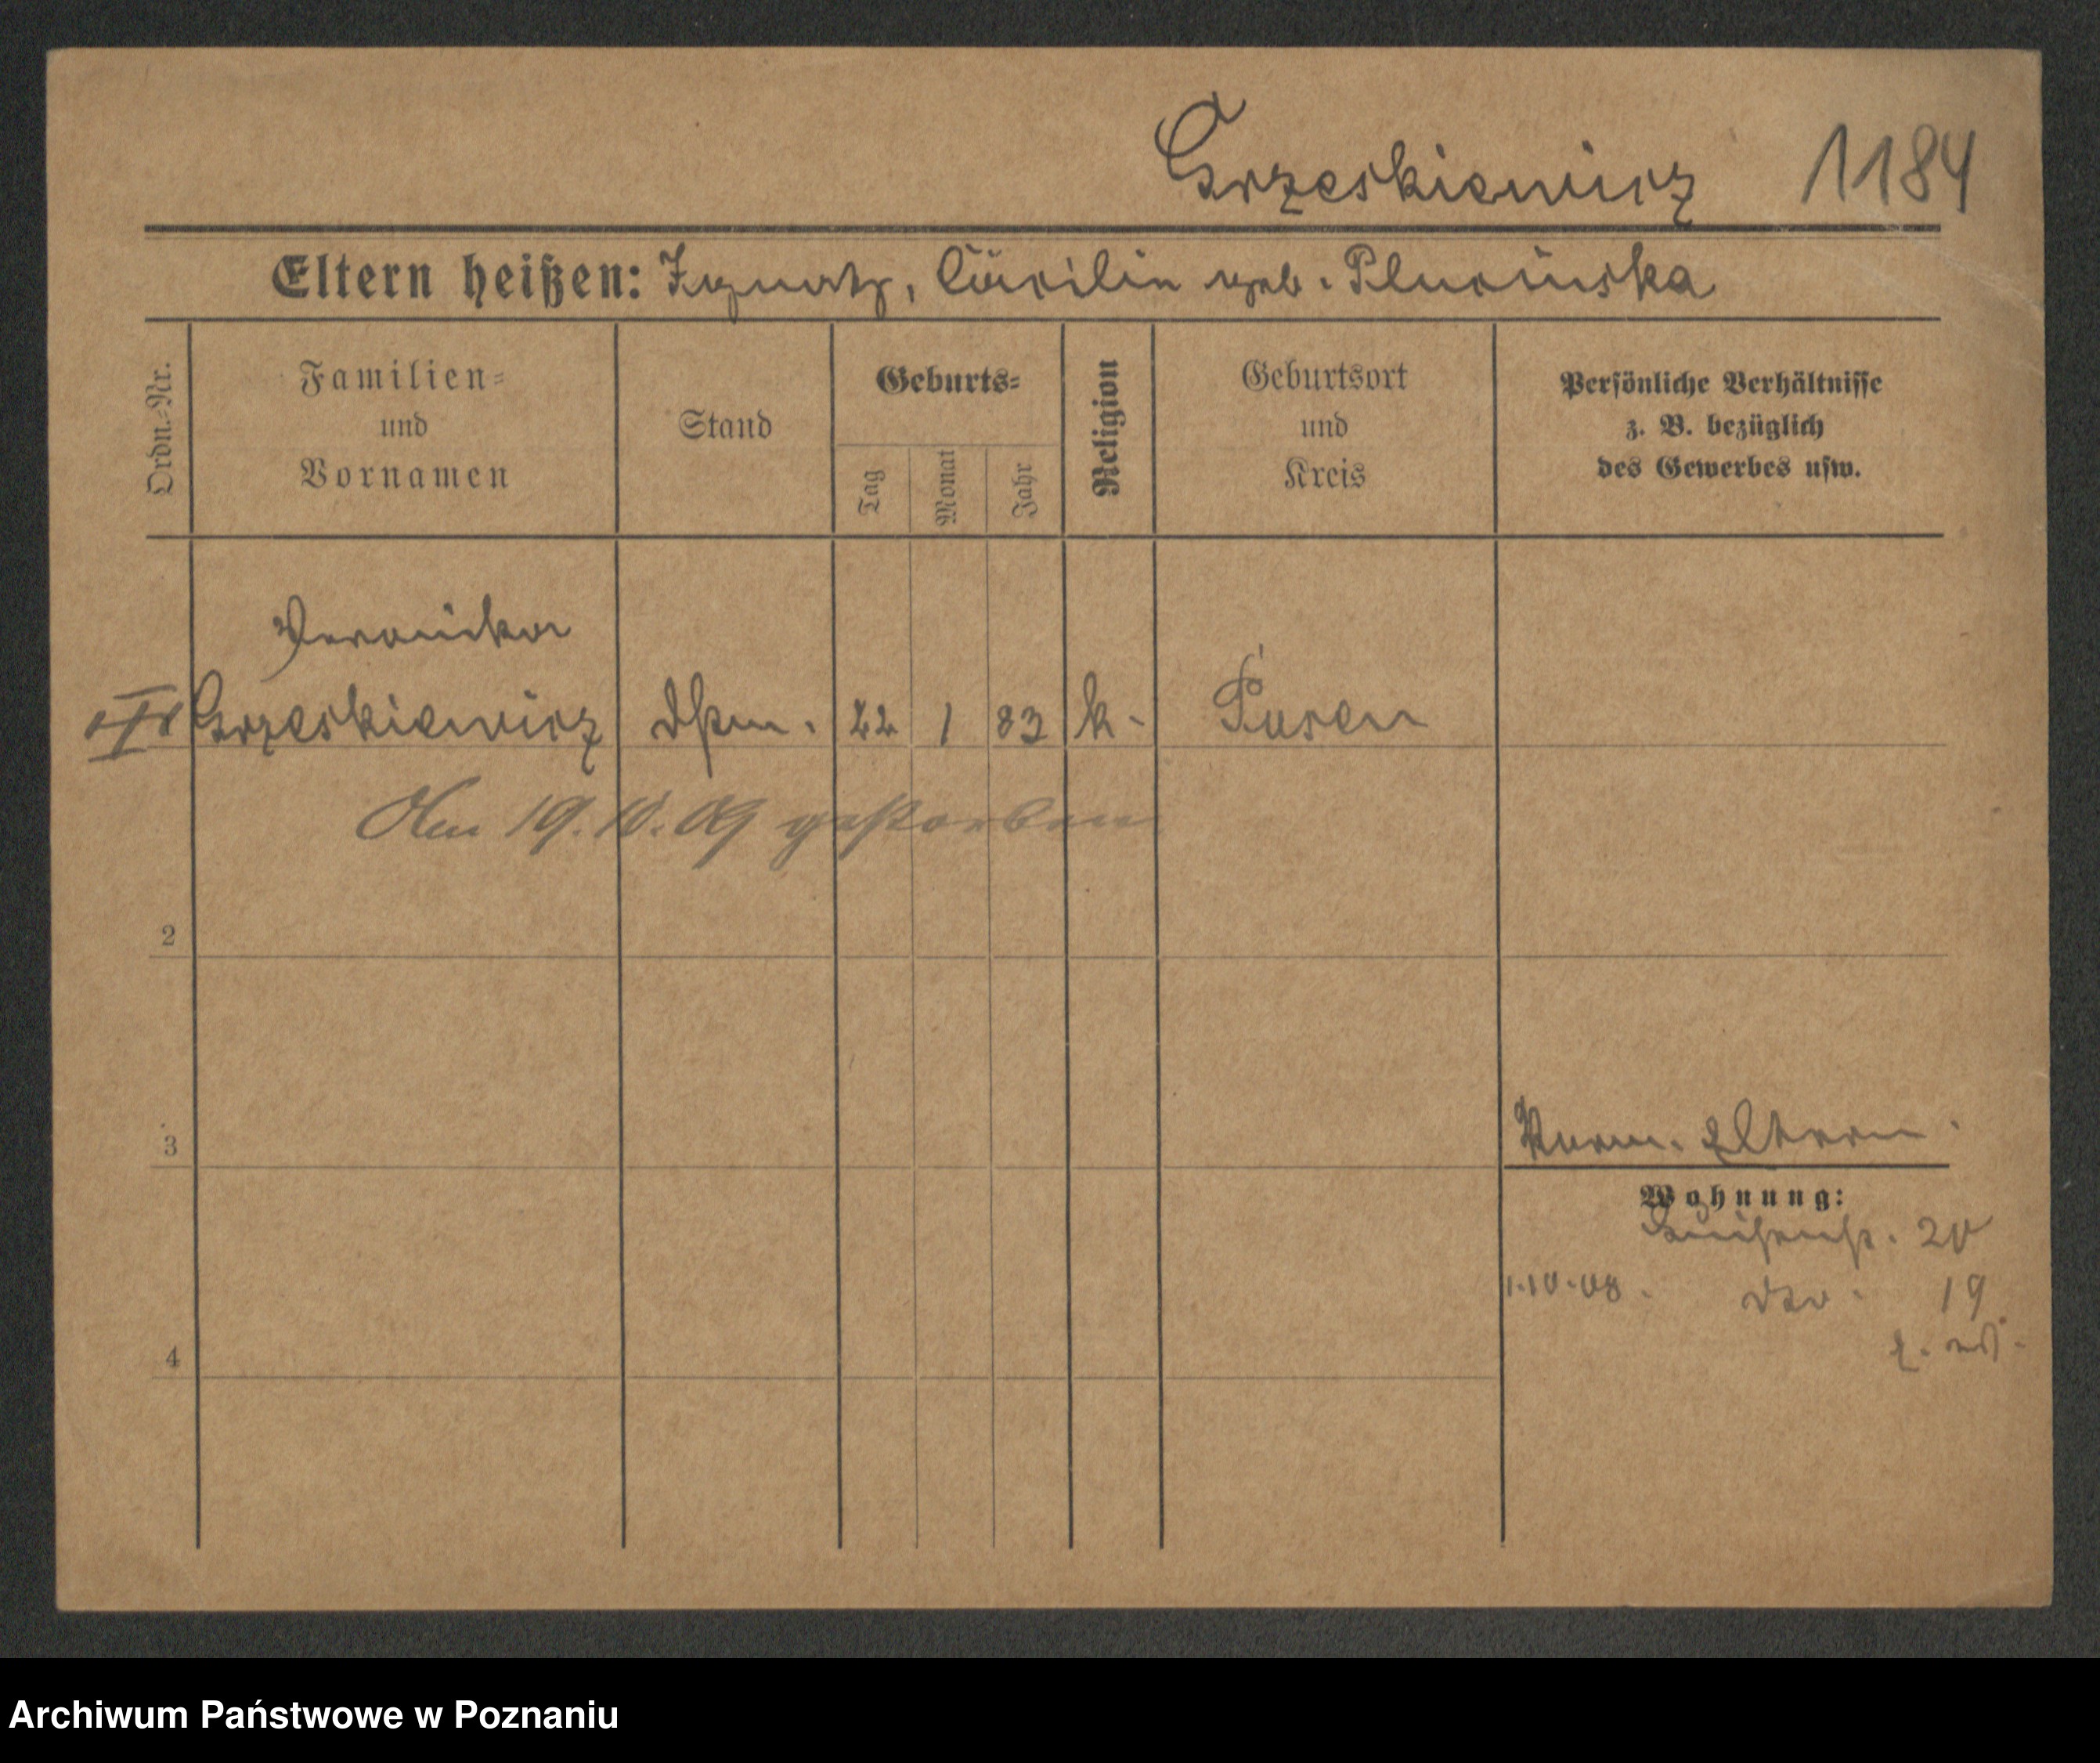 Grzeskiewicz 1184
Eltern heißen: Ignatz, Cäcilia geb. Plucinska
Ordn.-Nr.
Familien-
und
Vornamen
Stand
Geburts-
Tag
Monat
Jahr
Religion
Geburtsort
und
Kreis
Persönliche Verhältnisse
z. B. bezüglich
des Gewerbes usw.
Veronika
Grzeskiewicz 22 1 83 k. Posen
Am 19. 10. 09 gestorben
2
3
Eltern.
Wohnung:
Luisenstr. 20
1.10.08. dto. 19
4
Archiwum Państwowe w Poznaniu